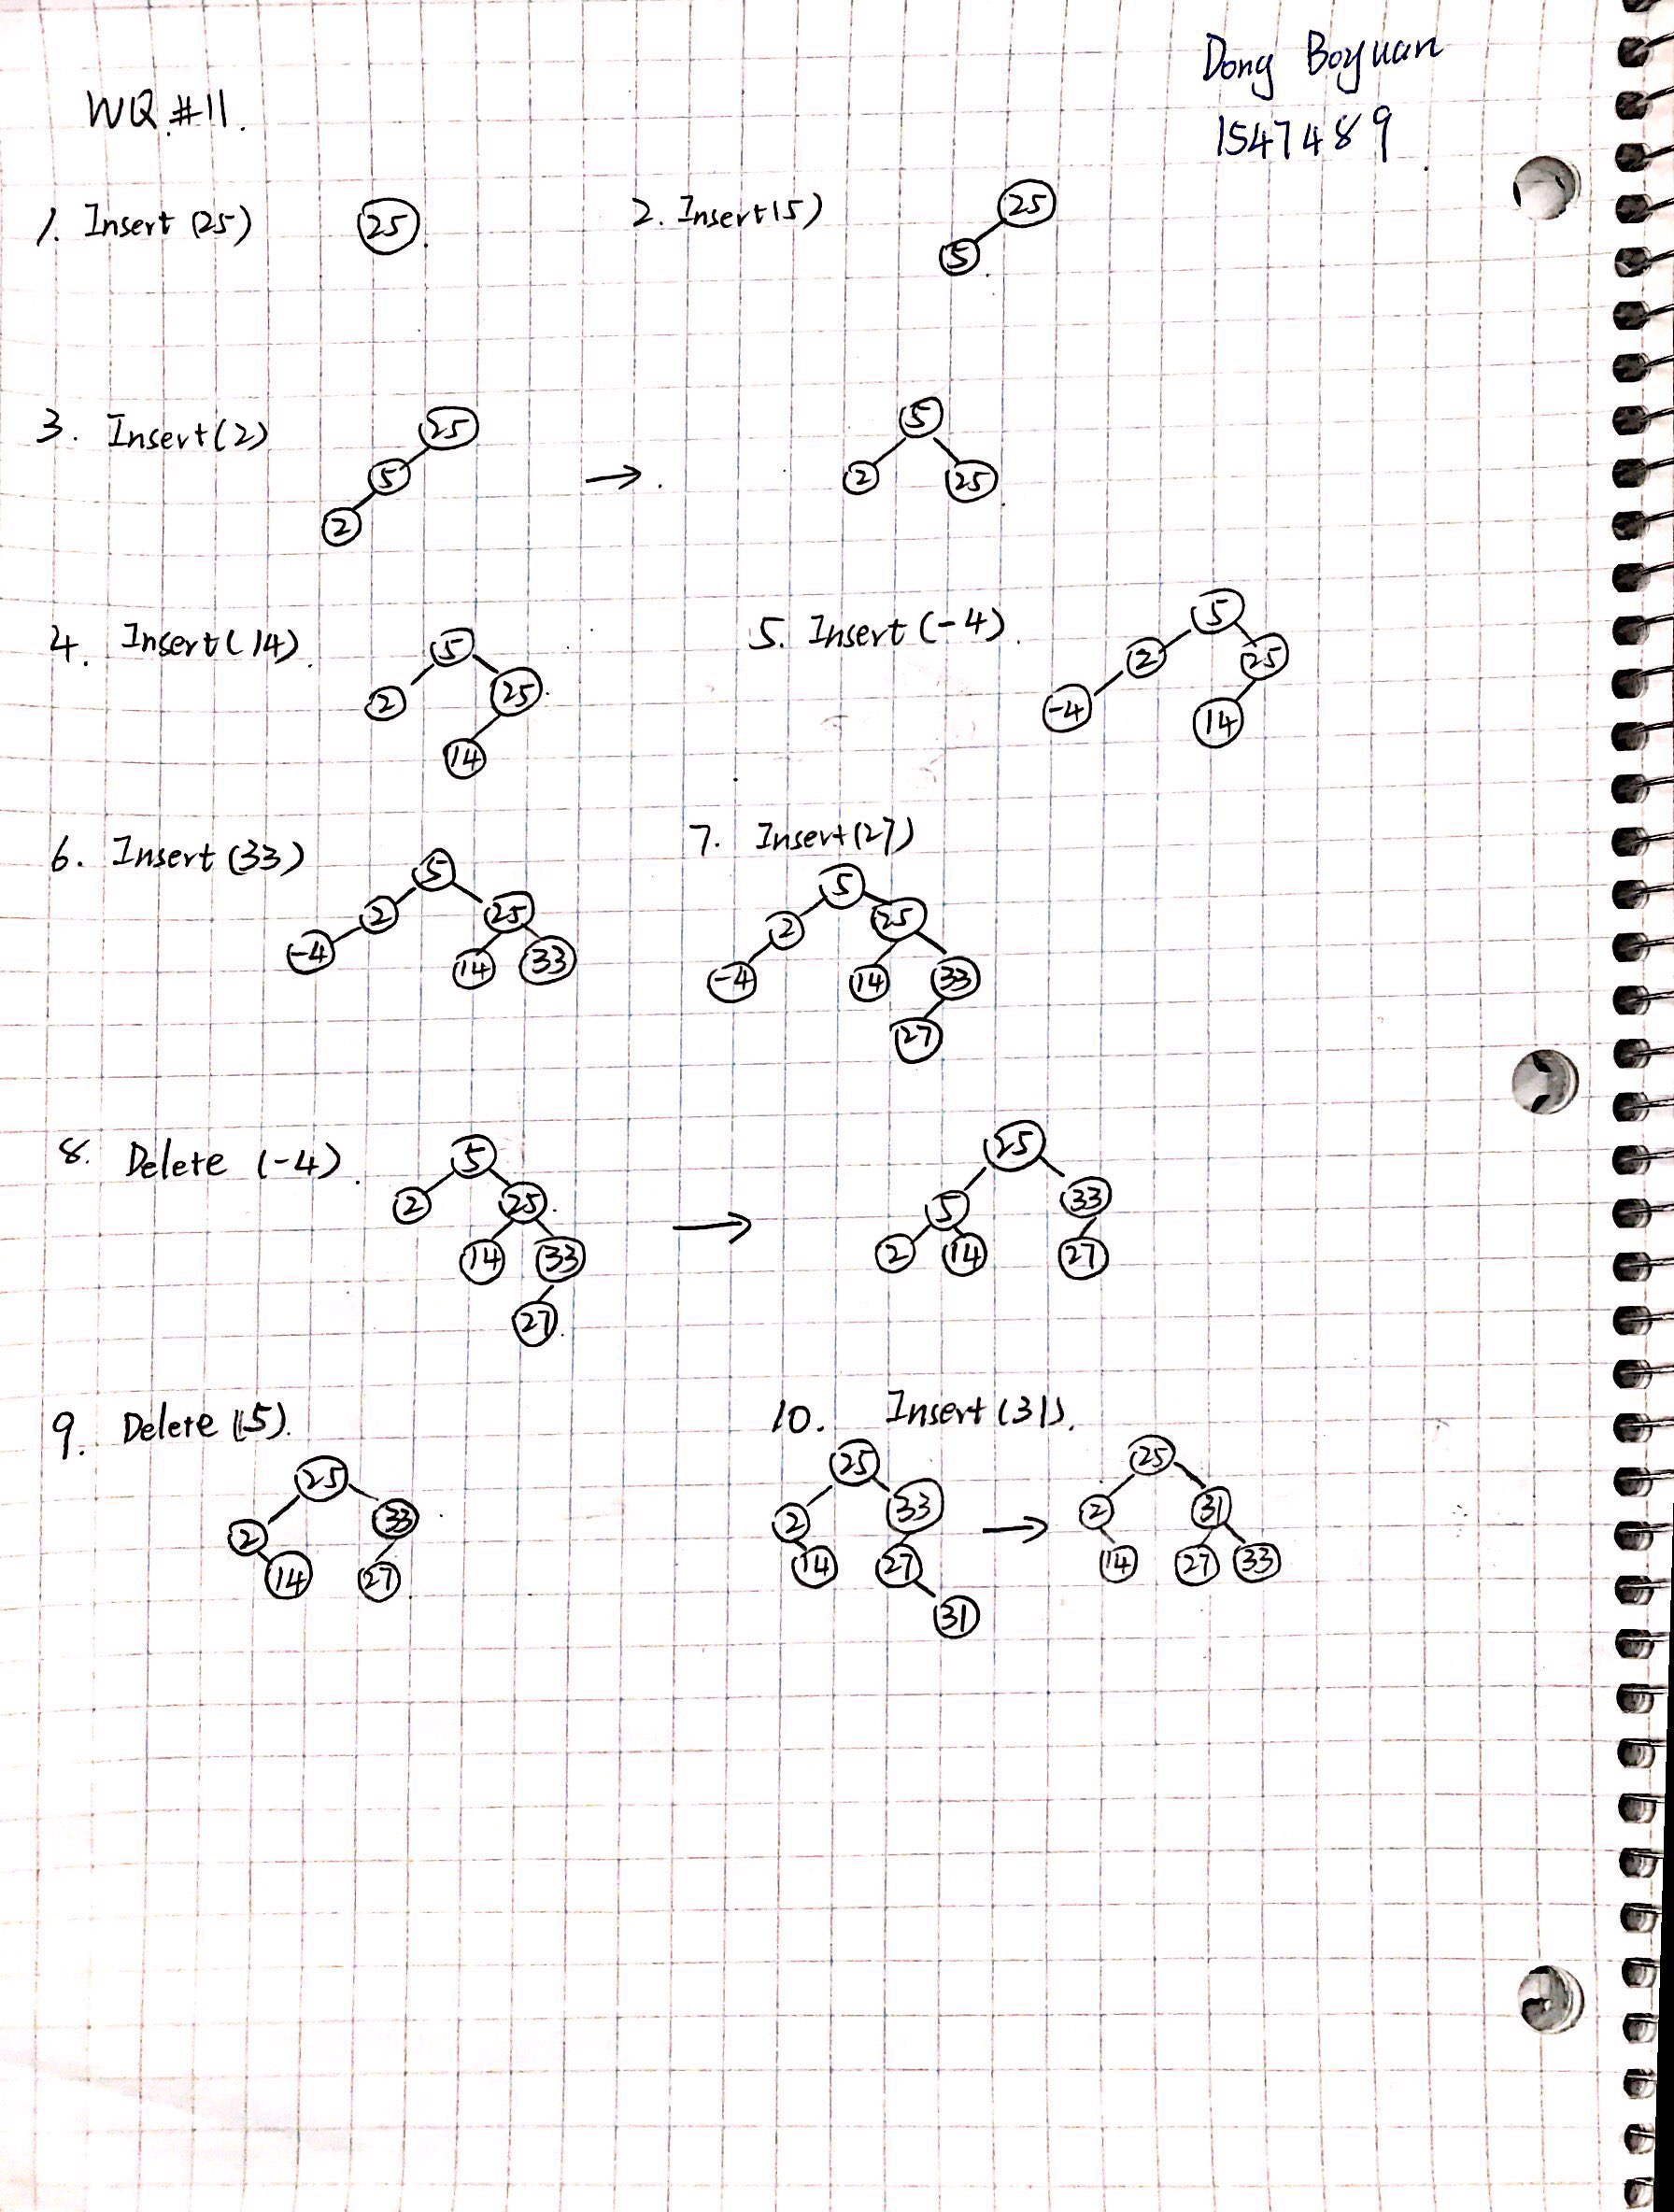 Dong Boyuan
1547489
WQ #11.
1. Insert (25)
25
2. Insert(5)
25
5
3. Insert(2)
25
5
2
→
5
2 25
4. Insert(14)
5
2 25
14
5. Insert(-4)
5
2 25
-4 14
6. Insert(33)
5
2 25
-4 14 33
7. Insert(27)
5
2 25
-4 14 33
27
8. Delete (-4)
5
2 25
14 33
27
→
25
5 33
2 14 27
9. Delete (5).
25
2 33
14 27
10. Insert(31).
25
2 33
14 27
31
→
25
2 31
14 27 33